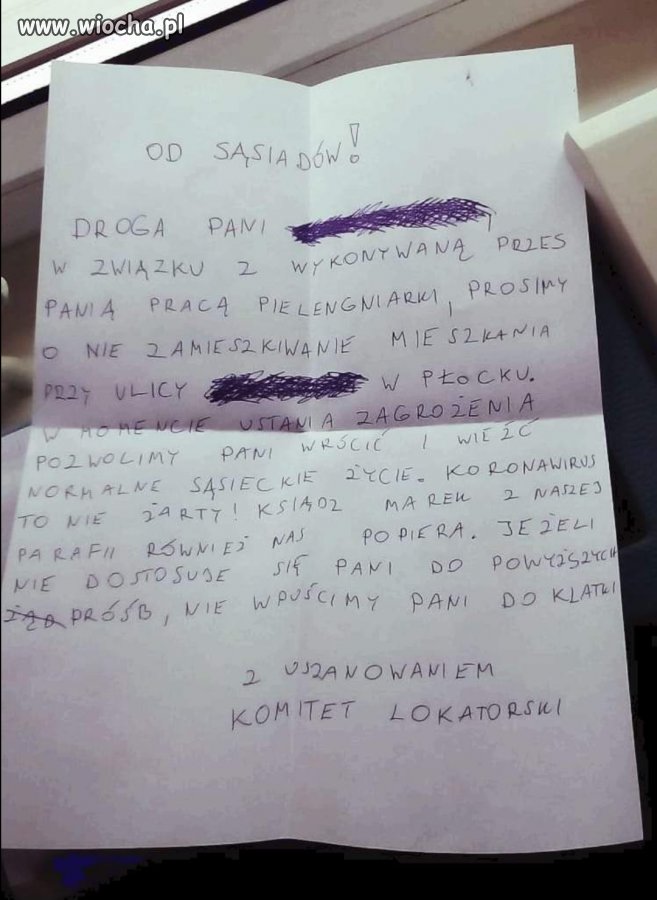 www.wiocha.pl
OD SĄSIADÓW!
DROGA PANI ,
W ZWIĄZKU Z WYKONYWANĄ PRZES
PANIĄ PRACĄ PIELENGNIARKI, PROSIMY
O NIE ZAMIESZKIWANIE MIESZKANIA
PRZY ULICY W PŁOCKU.
W MOMENCIE USTANIA ZAGROŻENIA
POZWOLIMY PANI WRÓCIĆ I WIEŹĆ
NORMALNE SĄSIECKIE ŻYCIE. KORONAWIRUS
TO NIE ŻARTY! KSIĄDZ MAREK Z NASZEJ
PARAFII RÓWNIEŻ NAS POPIERA. JEŻELI
NIE DOSTOSUJE SIĘ PANI DO POWYŻSZYCH
PRÓŚB, NIE WPUŚCIMY PANI DO KLATKI
Z USZANOWANIEM
KOMITET LOKATORSKI